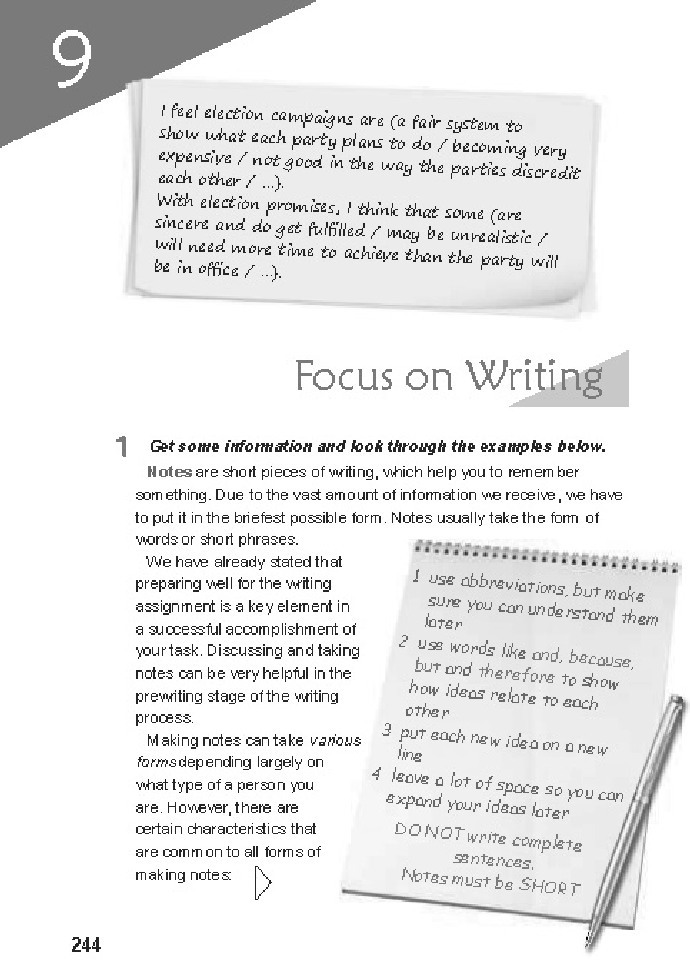 9
I feel election campaigns are (a fair system to
show what each party plans to do / becoming very
expensive / not good in the way the parties discredit
each other / ...).
With election promises, I think that some (are
sincere and do get fulfilled / may be unrealistic /
will need more time to achieve than the party will
be in office / ...).
Focus on Writing
1 Get some information and look through the examples below.
Notes are short pieces of writing, which help you to remember
something. Due to the vast amount of information we receive, we have
to put it in the briefest possible form. Notes usually take the form of
words or short phrases.
We have already stated that
preparing well for the writing
assignment is a key element in
a successful accomplishment of
your task. Discussing and taking
notes can be very helpful in the
prewriting stage of the writing
process.
Making notes can take various
forms depending largely on
what type of a person you
are. However, there are
certain characteristics that
are common to all forms of
making notes:
1 use abbreviations, but make
sure you can understand them
later
2 use words like and, because,
but and therefore to show
how ideas relate to each
other
3 put each new idea on a new
line
4 leave a lot of space so you can
expand your ideas later
DO NOT write complete
sentences.
Notes must be SHORT
244